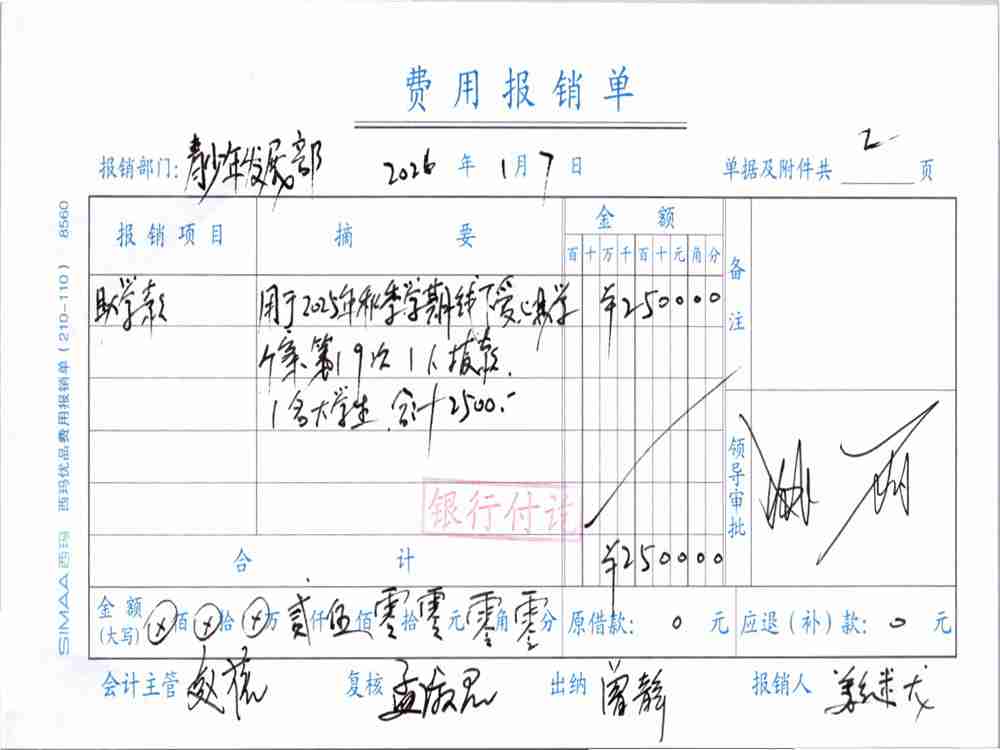 费用报销单
报销部门: 青少年发展部 2026 年 1 月 7 日 单据及附件共 2 页
报销项目 摘要 金额 备注
百 十 万 千 百 十 元 角 分
助学款 用于2025年秋季学期线下爱心助学 ¥250000
个案第19次1人拨款.
1名大学生 合计2500.-
银行付讫
领导审批
合计 ¥250000
金额(大写) ⊗佰⊗拾⊗万贰仟伍佰零拾零元零角零分 原借款: 0 元 应退(补)款: 0 元
会计主管 赵 复核 孟 出纳 曾静 报销人
SIMAA西玛 西玛优品费用报销单(210-110) 8560